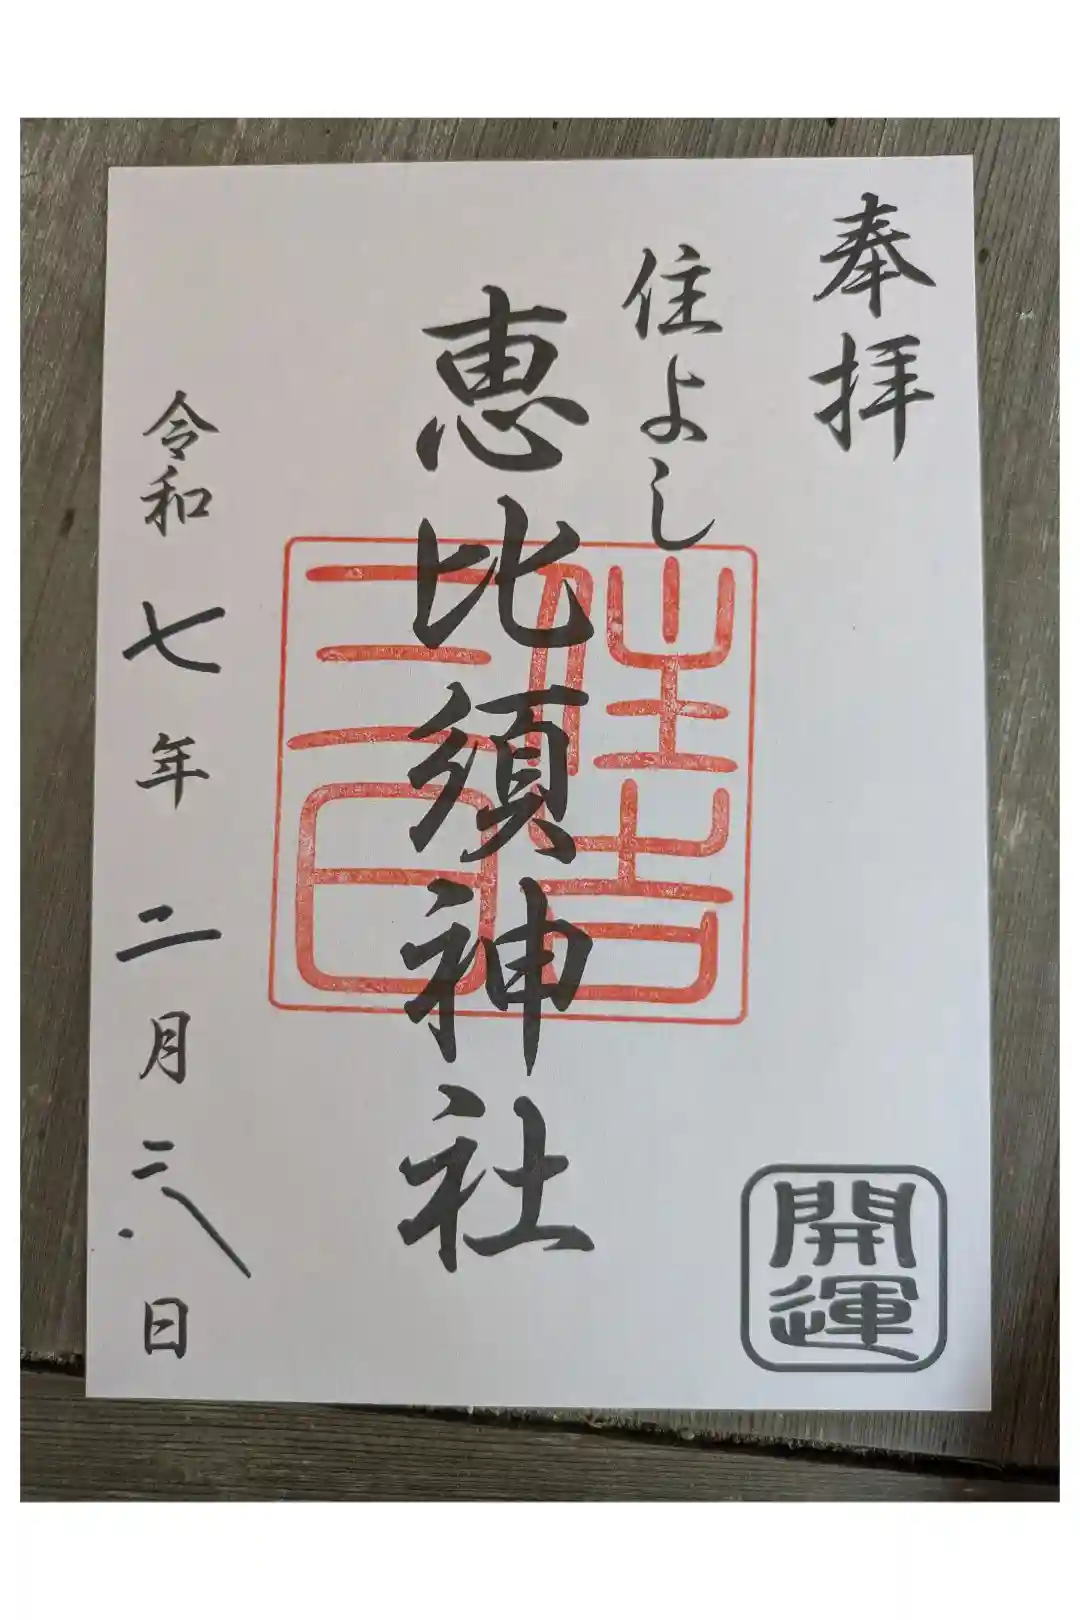 奉拝
住よし
恵比須神社
住吉
三日
令和七年二月二八日
開運